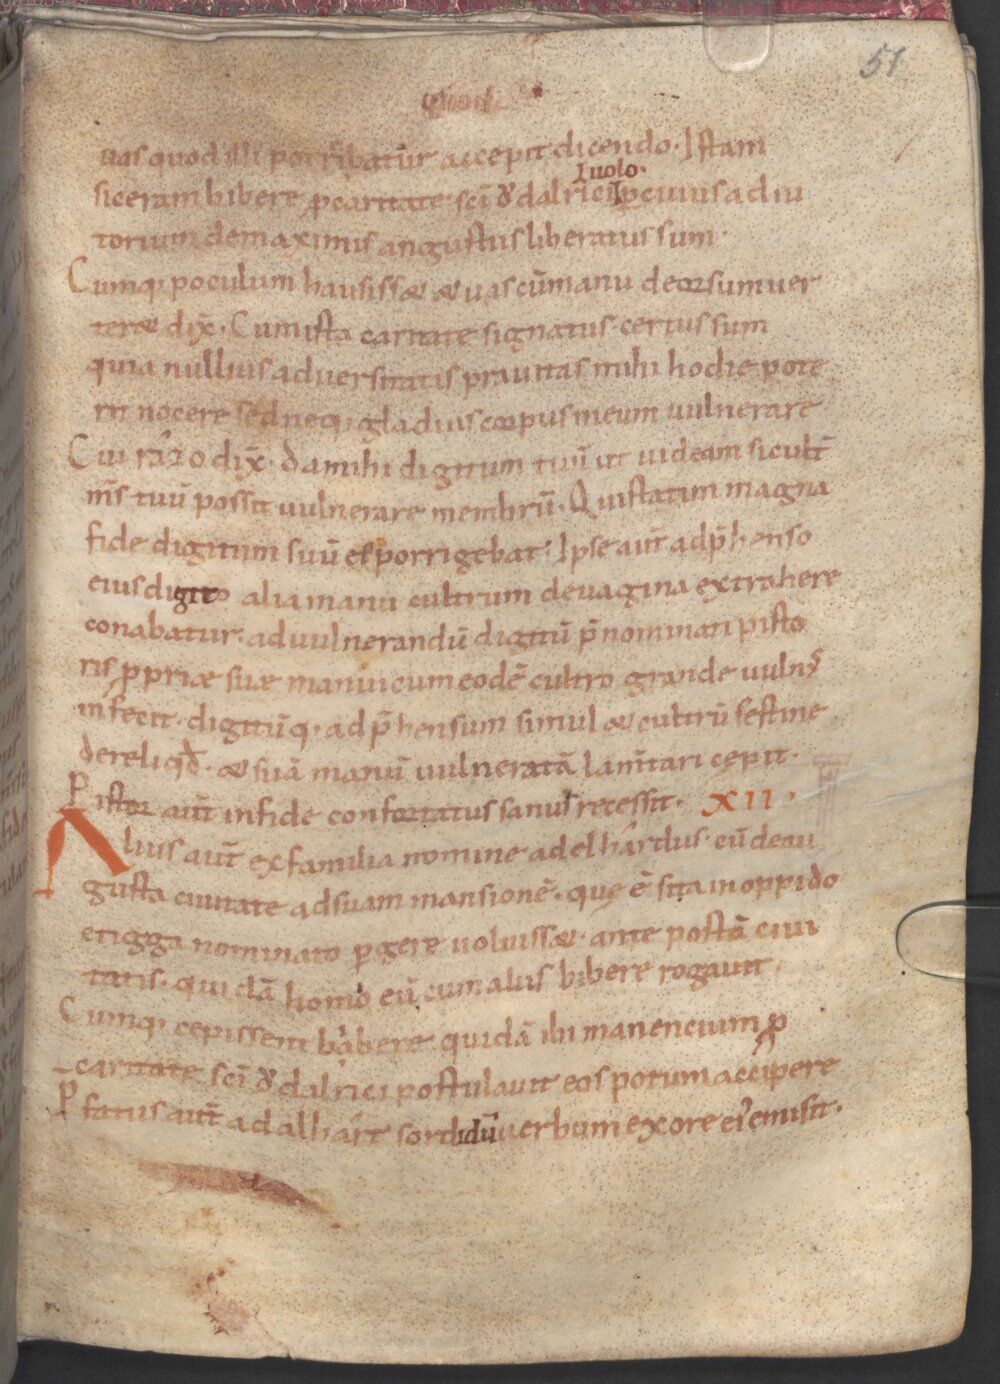 51
uas quod illi porribatur accepit dicendo. Istam
I uolo.
siceram bibere ꝓ caritate sc̄i ỡdalrici Iꝑ cuius adiu
torium de maximis angustiis liberatus sum.
Cumq; poculum hausiss& & uas cū manu deorsum uer
ter& dix̄. Cum ista caritate signatus. certus sum
quia nullius aduersitatis prauitas mihi hodie pote
rit nocere sed neq; gladius corpus meum uulnerare
Cui dix̄. da mihi digitum tuū ut uideam si cult̄
m̄s tuū possit uulnerare membrū. Qui statim magna
fide digitum suū ei porrigebat. Ipse aut̄ adp̄henso
eius digito alia manu cultrum de uagina extrahere
conabatur. ad uulnerandū digitū p̄nominati pisto
ris ꝓpriæ suæ manui cum eodē cultro grande uuln᷒
infecit. digitūq; adp̄hensum simul & cultrū festine
dereliqd̄. & suā manū uulneratā lam̄tari cepit.
Pistor aut̄ in fide confortatus sanus recessit. XII.
Alius aut̄ ex familia nomine adelhardus. cū de au
gusta ciuitate ad suam mansionē. quę ē sita in oppido
etigga nominato ꝑgere uoluiss&. ante portā ciui
tatis. quidā homo eū cum aliis bibere rogauit.
Cumq; cepissent bibere quidā ibi manencium ꝓ
caritate sc̄i ỡdalrici postulauit eos potum accipere
P̄fatus aut̄ adalhart sordidū uerbum ex ore ei᷒ emisit.